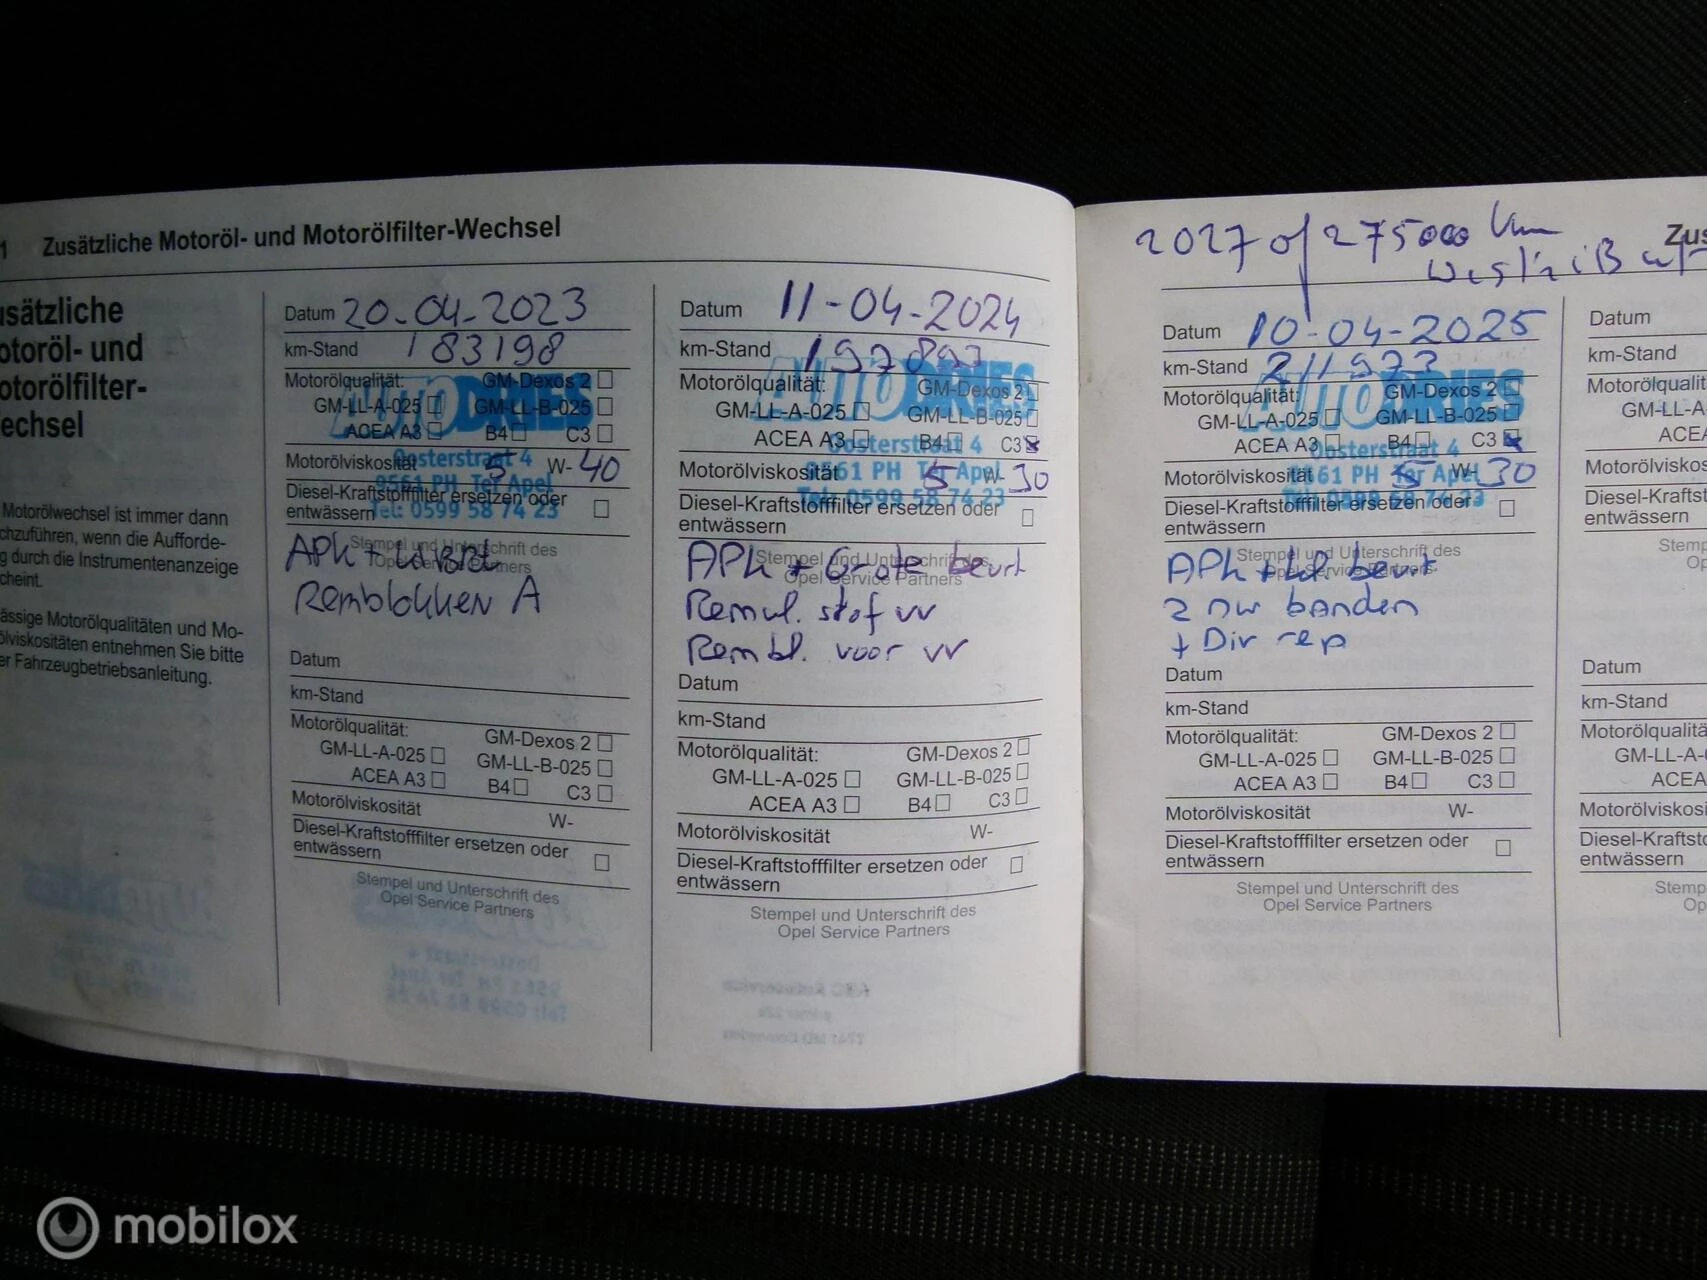 1 Zusätzliche Motoröl- und Motorölfilter-Wechsel
usätzliche
otoröl- und
otorölfilter-
echsel
Motorölwechsel ist immer dann
chzuführen, wenn die Aufforde-
g durch die Instrumentenanzeige
cheint.
ässige Motorölqualitäten und Mo-
ölviskositäten entnehmen Sie bitte
er Fahrzeugbetriebsanleitung.
Datum 20-04-2023
km-Stand 183198
Motorölqualität: GM-Dexos 2
GM-LL-A-025 GM-LL-B-025
ACEA A3 B4 C3
Motorölviskosität 5 W-40
Diesel-Kraftstofffilter ersetzen oder
entwässern
AUTO DRIES
Oosterstraat 4
9561 PH Ter Apel
Tel: 0599 58 74 23
Stempel und Unterschrift des
Opel Service Partners
APK +
Remblokken A
Datum
km-Stand
Motorölqualität: GM-Dexos 2
GM-LL-A-025 GM-LL-B-025
ACEA A3 B4 C3
Motorölviskosität W-
Diesel-Kraftstofffilter ersetzen oder
entwässern
Stempel und Unterschrift des
Opel Service Partners
Datum 11-04-2024
km-Stand 197893
Motorölqualität: GM-Dexos 2
GM-LL-A-025 GM-LL-B-025
ACEA A3 B4 C3
Motorölviskosität 5 W-30
Diesel-Kraftstofffilter ersetzen oder
entwässern
AUTO DRIES
Oosterstraat 4
9561 PH Ter Apel
Tel: 0599 58 74 23
Stempel und Unterschrift des
Opel Service Partners
APK + Grote beurt
Remvl. stof vv
Rembl. voor vv
Datum
km-Stand
Motorölqualität: GM-Dexos 2
GM-LL-A-025 GM-LL-B-025
ACEA A3 B4 C3
Motorölviskosität W-
Diesel-Kraftstofffilter ersetzen oder
entwässern
Stempel und Unterschrift des
Opel Service Partners
2027 of 275000 km
Zus
Datum 10-04-2025
km-Stand 211973
Motorölqualität: GM-Dexos 2
GM-LL-A-025 GM-LL-B-025
ACEA A3 B4 C3
Motorölviskosität 5 W-30
Diesel-Kraftstofffilter ersetzen oder
entwässern
AUTO DRIES
Oosterstraat 4
9561 PH Ter Apel
Tel: 0599 58 74 23
Stempel und Unterschrift des
Opel Service Partners
APK + kl beurt
2 nw banden
+ Div rep
Datum
km-Stand
Motorölqualität: GM-Dexos 2
GM-LL-A-025 GM-LL-B-025
ACEA A3 B4 C3
Motorölviskosität W-
Diesel-Kraftstofffilter ersetzen oder
entwässern
Stempel und Unterschrift des
Opel Service Partners
Datum
km-Stand
Motorölqualit
GM-LL-A
ACEA
Motorölviskos
Diesel-Kraftsto
entwässern
Stemp
Op
Datum
km-Stand
Motorölqualitä
GM-LL-A
ACEA
Motorölviskosi
Diesel-Kraftsto
entwässern
Stemp
Op
mobilox